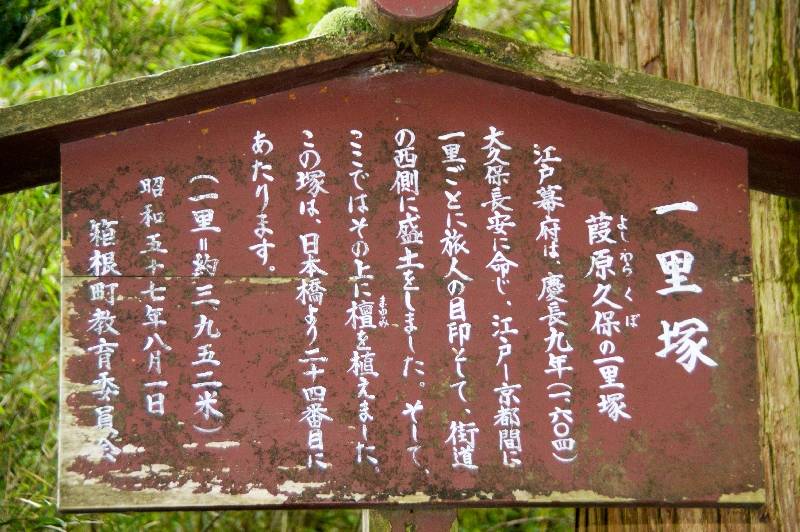 一里塚
葭原久保の一里塚
よしわらくぼ
江戸幕府は、慶長九年(一、六〇四)
大久保長安に命じ、江戸ー京都間に
一里ごとに旅人の目印として、街道
の西側に盛土をしました。そして、
ここではその上に檀を植えました。
まゆみ
この塚は、日本橋より二十四番目に
あたります。
(一里=約三、九五二米)
昭和五十七年八月一日
箱根町教育委員会